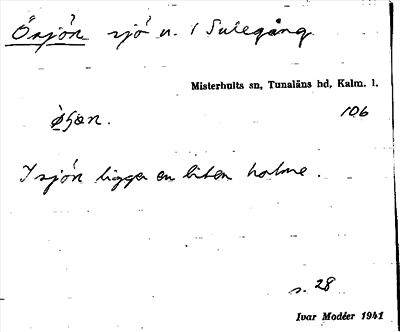 Ösjön sjö n. i Sulegång
Misterhults sn, Tunaläns hd, Kalm. l.
106
øʃøn.
I sjön ligger en liten holme.
s. 28
Ivar Modéer 1941